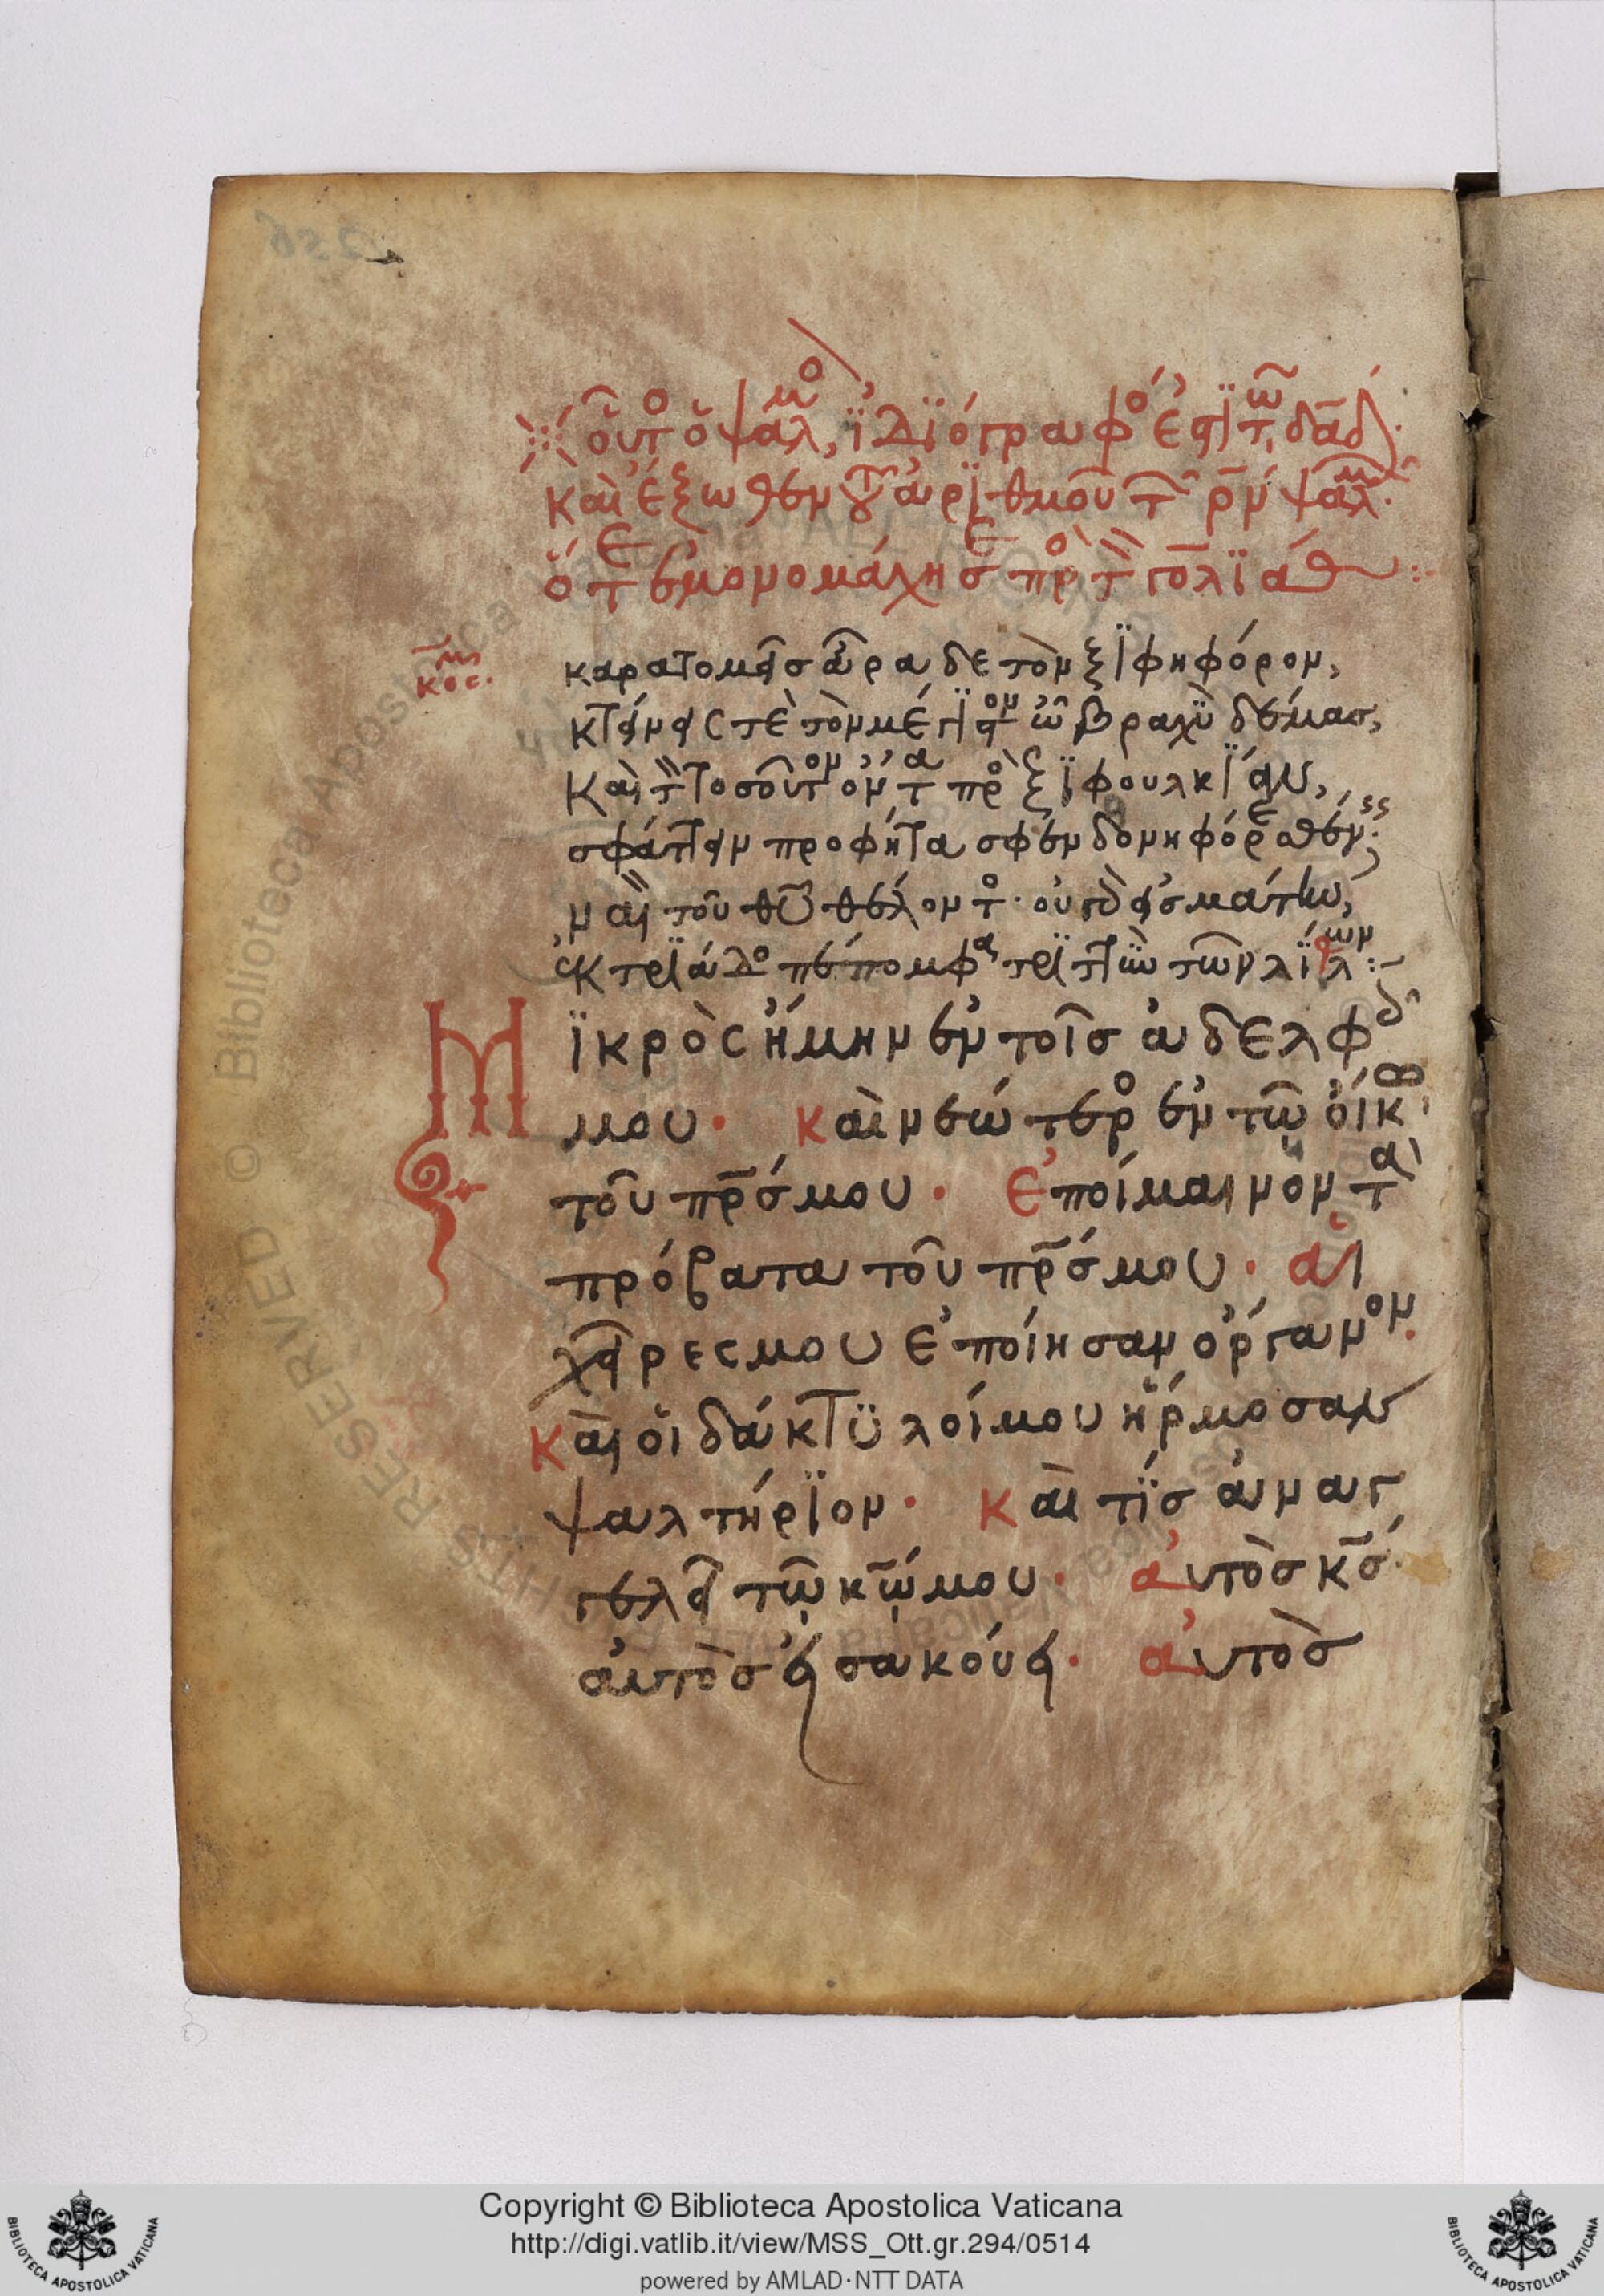 οὗτος ὁ ψαλμὸς, ἰδιόγραφος ἐστὶ τῶ δαδ.
καὶ ἔξωθεν τοῦ ἀριθμοῦ τῶν ρν ψαλμῶν.
ὅτε ἐμονομάχησε πρὸς τὸν γολιάθ
καρατομεῖς ἆρα δε τὸν ξιφηφόρον,
κτείνεις τὲ τὸν μέγιστον ὦ βραχὺ δέμας,
Καὶ τὴν τοσοῦτον πρὸς ξιφουλκίαν,
σφάττειν προφῆτα σφενδονηφόρε σθένεις
ναὶ τοῦ θῦ θέλοντος
Μικρὸς ἤμην ἐν τοῖς ἀδελφοῖς
μου· καὶ νεώτερος ἐν τῶ οἴκω
τοῦ πρσ μου· Ἐποίμαινον τὰ
πρόβατα τοῦ πρσ μου· αἱ
χεῖρες μου ἐποίησαν ὄργανον.
Καὶ οἱ δάκτυλοί μου ἥρμοσαν
ψαλτήριον· Καὶ τίς ἀναγ
γελεῖ τῷ κῷ μου· αὐτὸς κσ·
αὐτὸς εἰσακούει· αὐτὸς
Copyright © Biblioteca Apostolica Vaticana
http://digi.vatlib.it/view/MSS_Ott.gr.294/0514
powered by AMLAD·NTT DATA
BIBLIOTECA APOSTOLICA VATICANA
BIBLIOTECA APOSTOLICA VATICANA